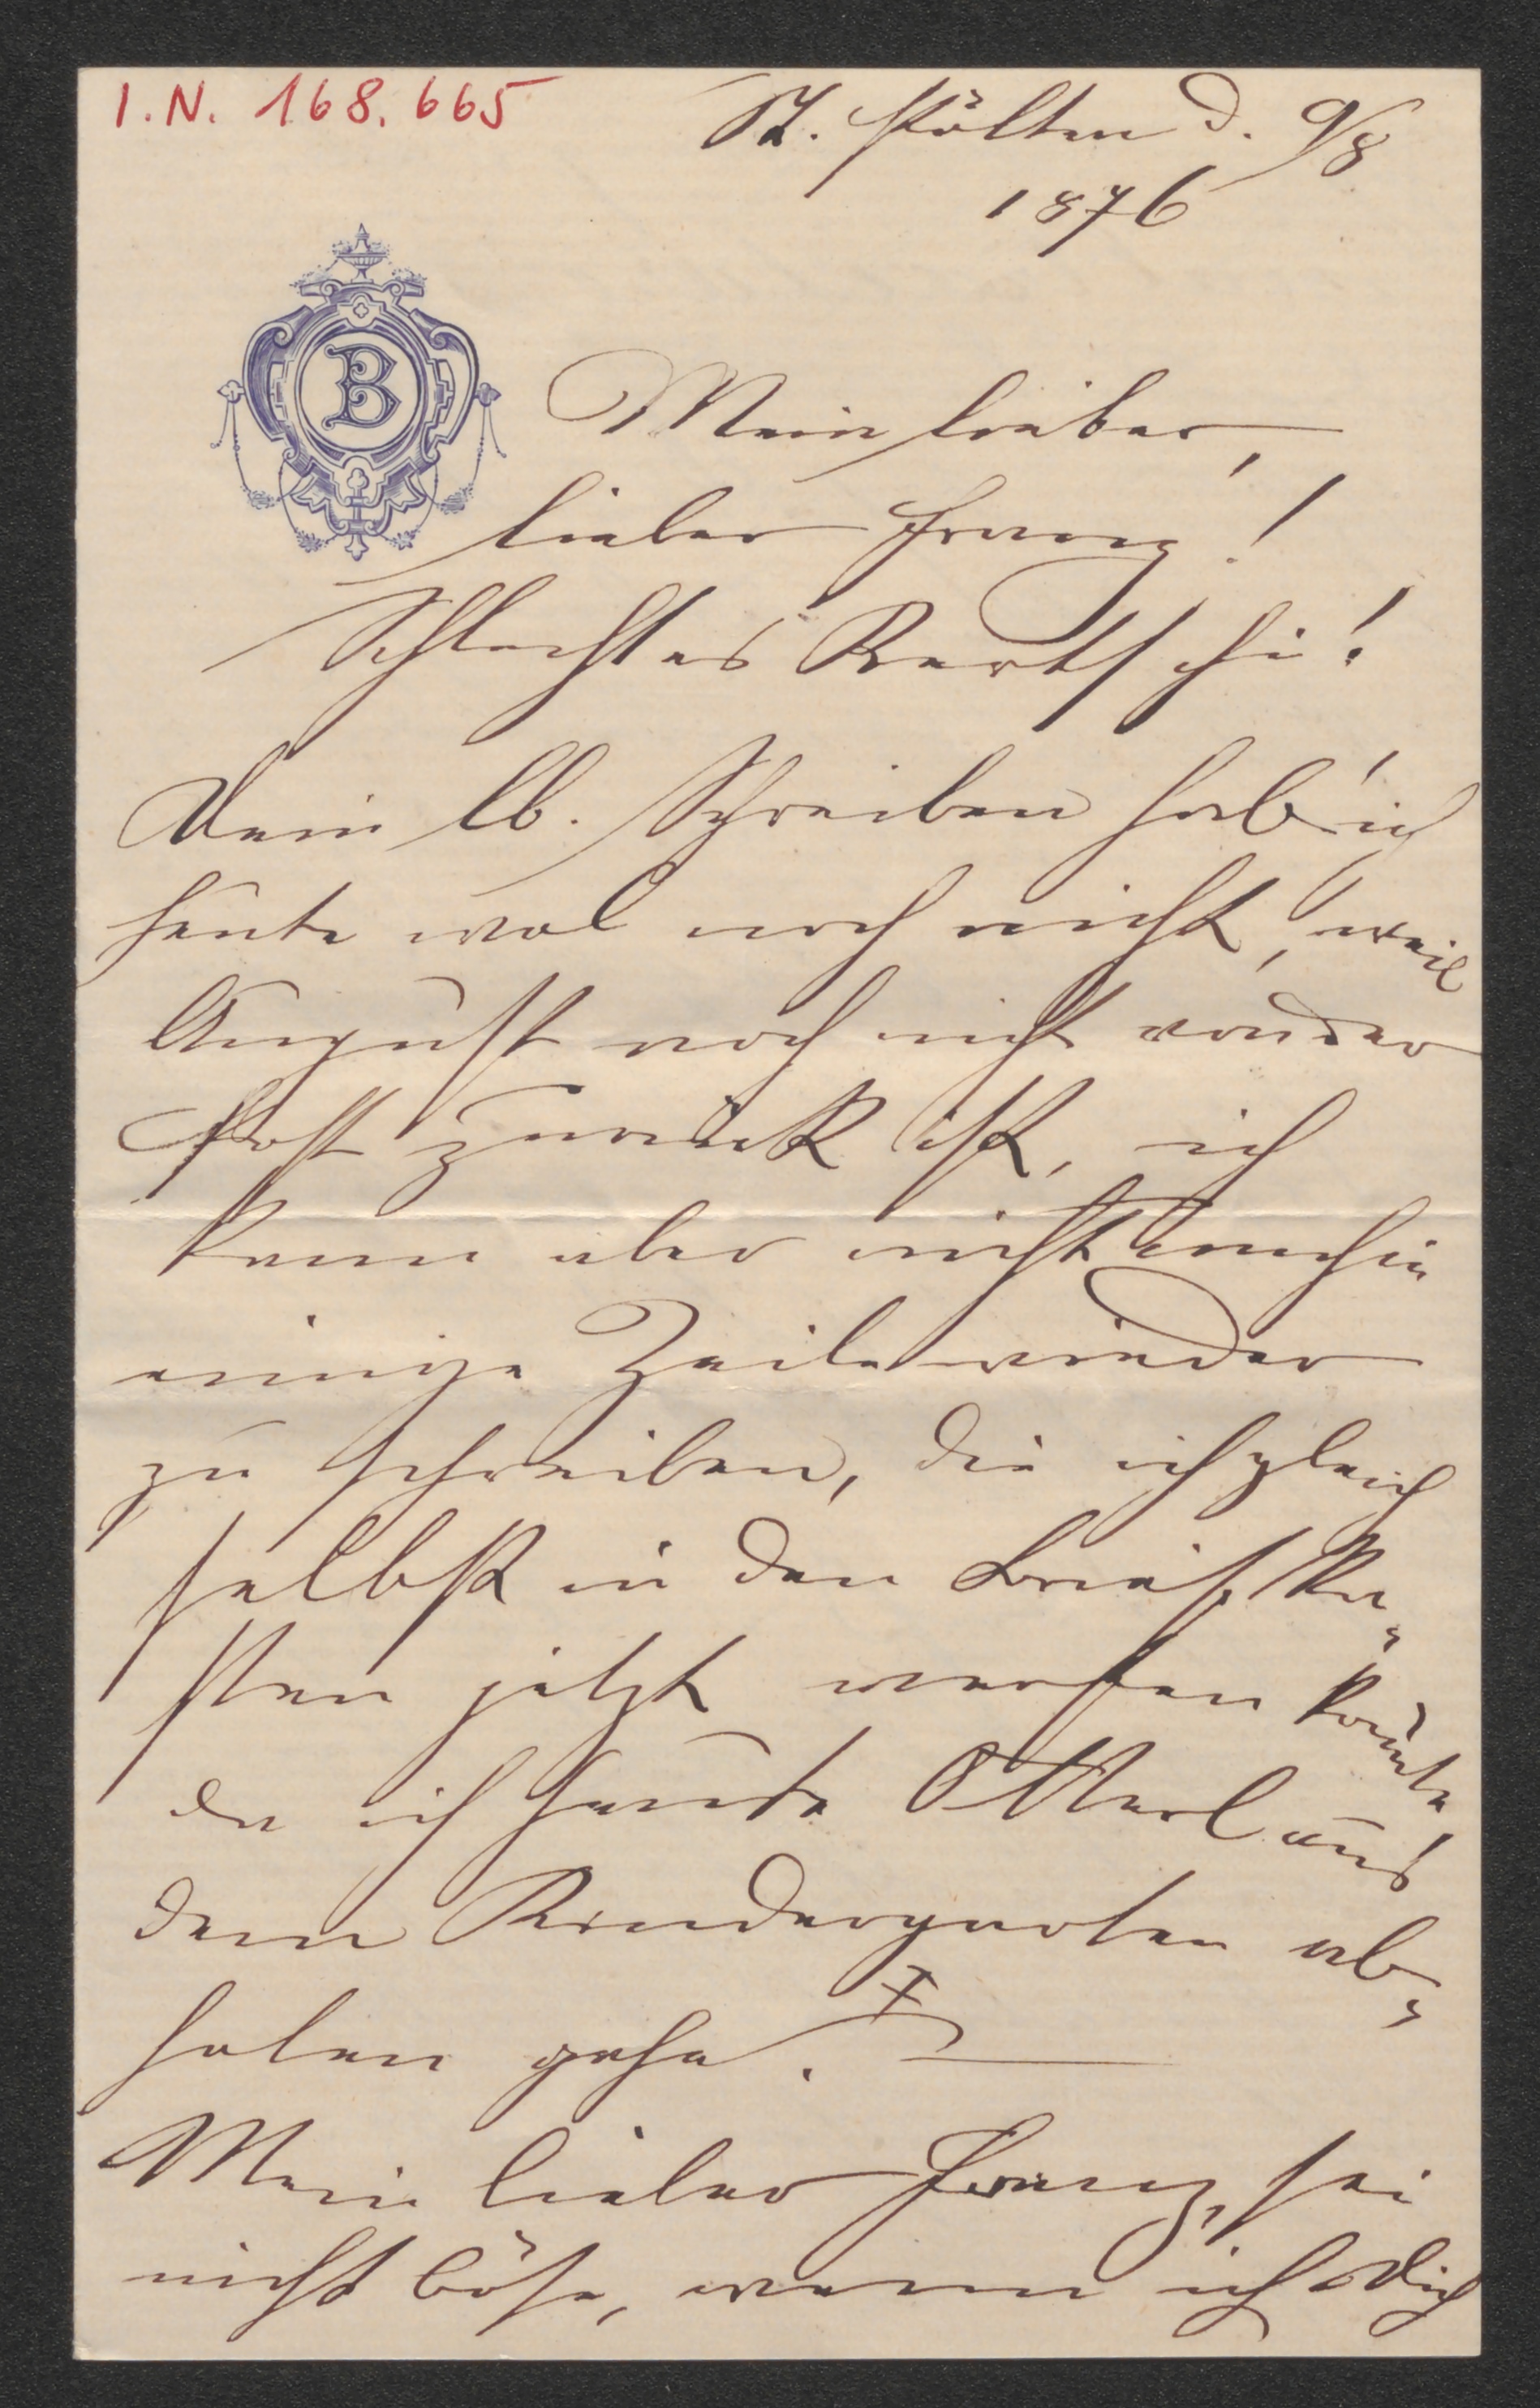 I.N. 168.665
St. Pölten d. 9/8
1876
B
Mein lieber,
lieber Franz!
Schlechtes Bartschi!
Dein lb. Schreiben hab' ich
heute wol noch nicht, weil
August noch nicht von der
Post zurück ist, ich
kann aber nicht umhin
einige Zeile wieder
zu schreiben, die ich gleich
selbst in den Brief Ka„
sten jetzt werfen könnte
da ich heute Otterl aus
dem Kindergarten ab„
holen gehe.
Mein lieber Franz, sei
nicht böse, wenn ich Dich